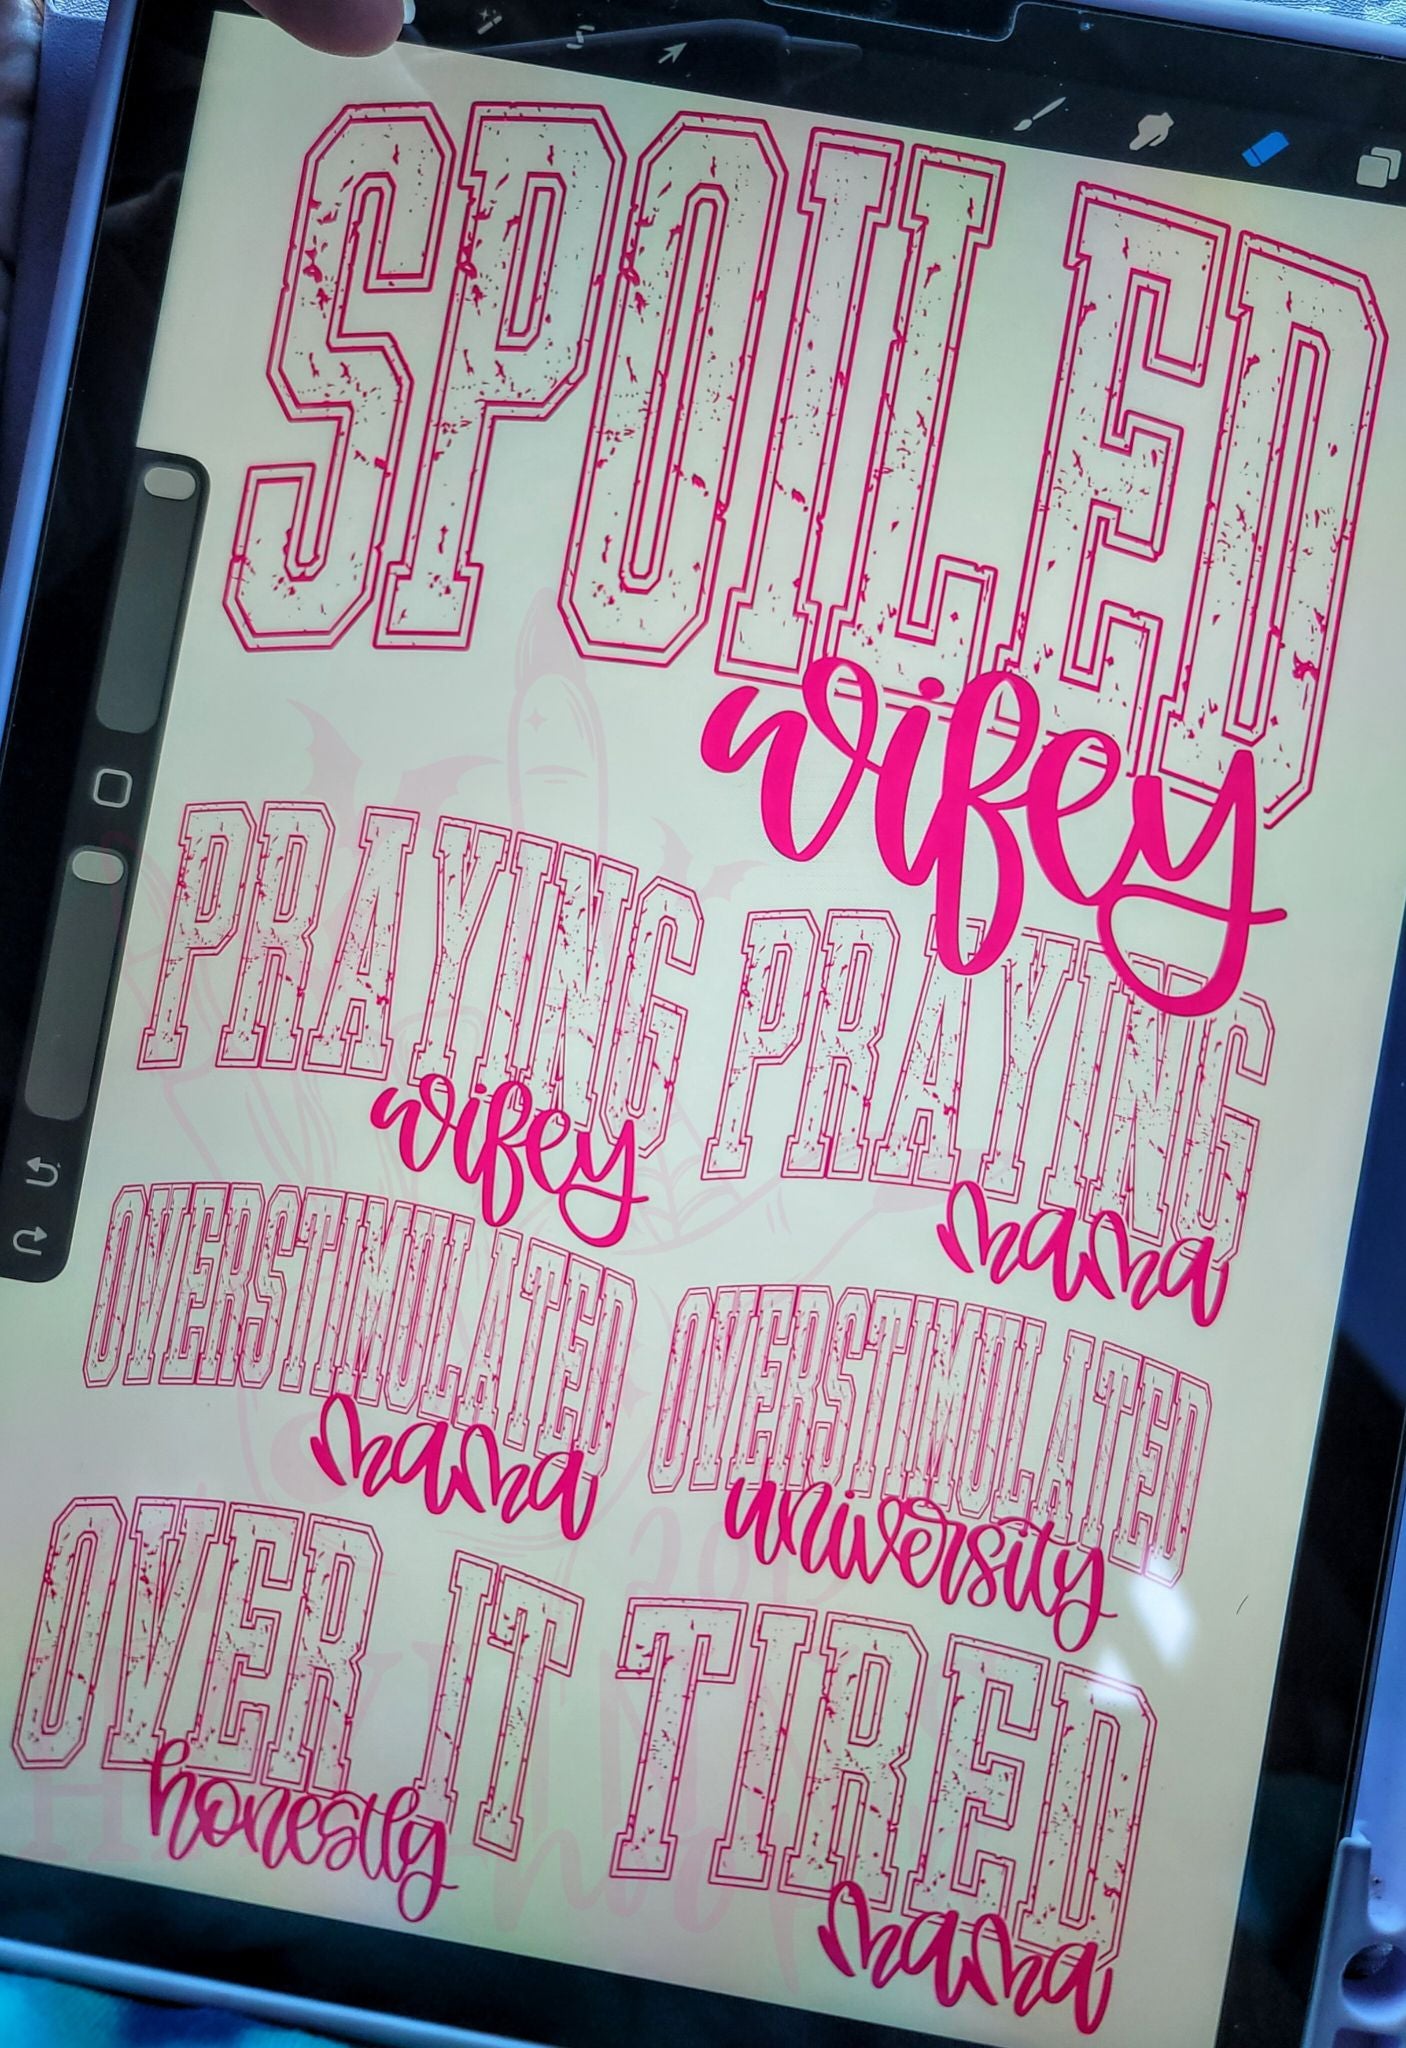 SPOILED
wifey
PRAYING
wifey
PRAYING
mama
OVERSTIMULATED
mama
OVERSTIMULATED
university
OVER IT
honestly
TIRED
mama